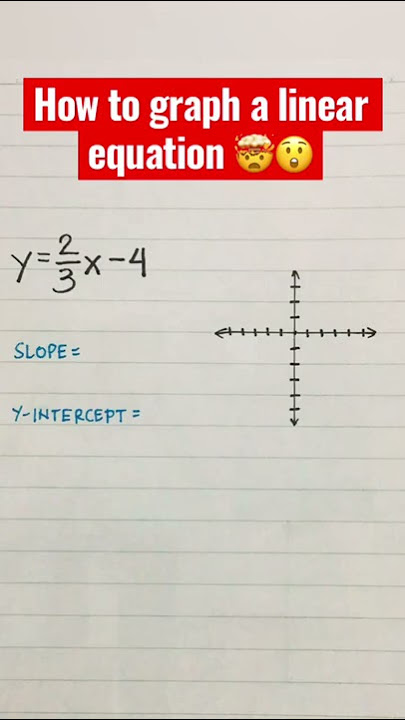 How to graph a linear
equation 🤯😲
y=2/3x-4
SLOPE=
Y-INTERCEPT=